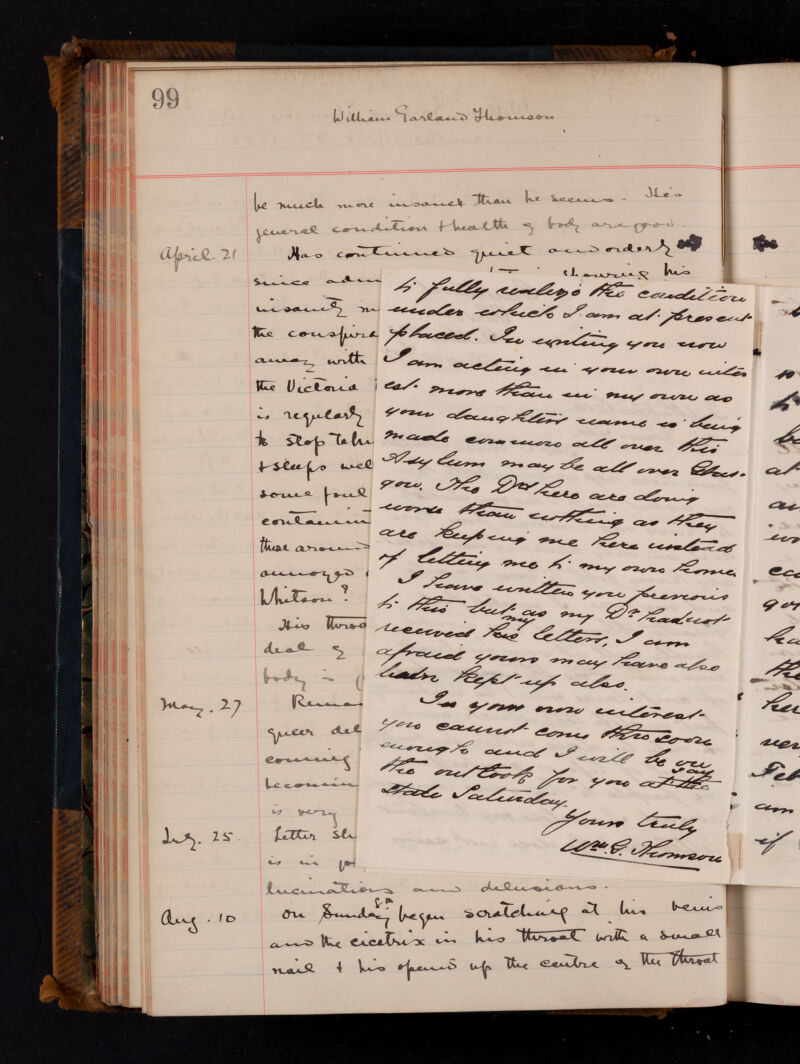 99
William Garland Thomson
be much more insane than he seems. His
general condition & health of body are good.
April. 21 Has continued quiet and orderly
since adm showing his
insanity m
the conspira
away with
the Victoria
is regularly
to stop takin
& sleeps wel
some foul
contamin
those around
annoyed
Whitson?
His throa
deal of
body is
May. 27 Remai
queer del
coming
becomin
is very
July. 25 Letter sh
is in
lucinations and delusions.
Aug. 10 On Sunday began scratching at his
and the cicatrix in his throat with a small
nail & his opened up the centre of the throat
to fully realize the condition
under which I am at present
placed. In writing you now
I am acting in your own inter
est more than in my own as
your daughters name is being
made common all over this
Asylum may be all over Glas-
gow. The Drs here are doing
worse than nothing as they
are keeping me here instead
of letting me to my own home.
I have written you previous
to this but as my Dr had not
received his my letters, I am
afraid yours may have also
been kept up also.
In your own interest
you cannot come here soon
enough and I will be on
the outlook for you at the say
State Saturday.
Yours truly
Wm. G. Thomson
Feb
am
if